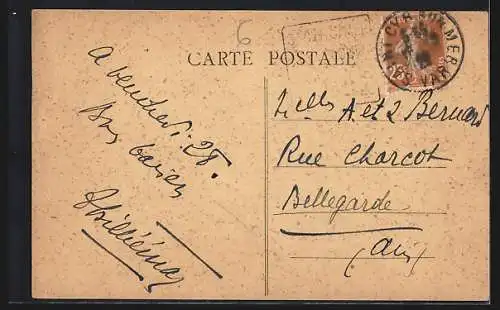 6
CARTE POSTALE
ST CYR SUR MER
VAR
A vendredi 28.
Bons baisers
Melles A et 2 Bernard
Rue Charcot
Bellegarde
(Ain)